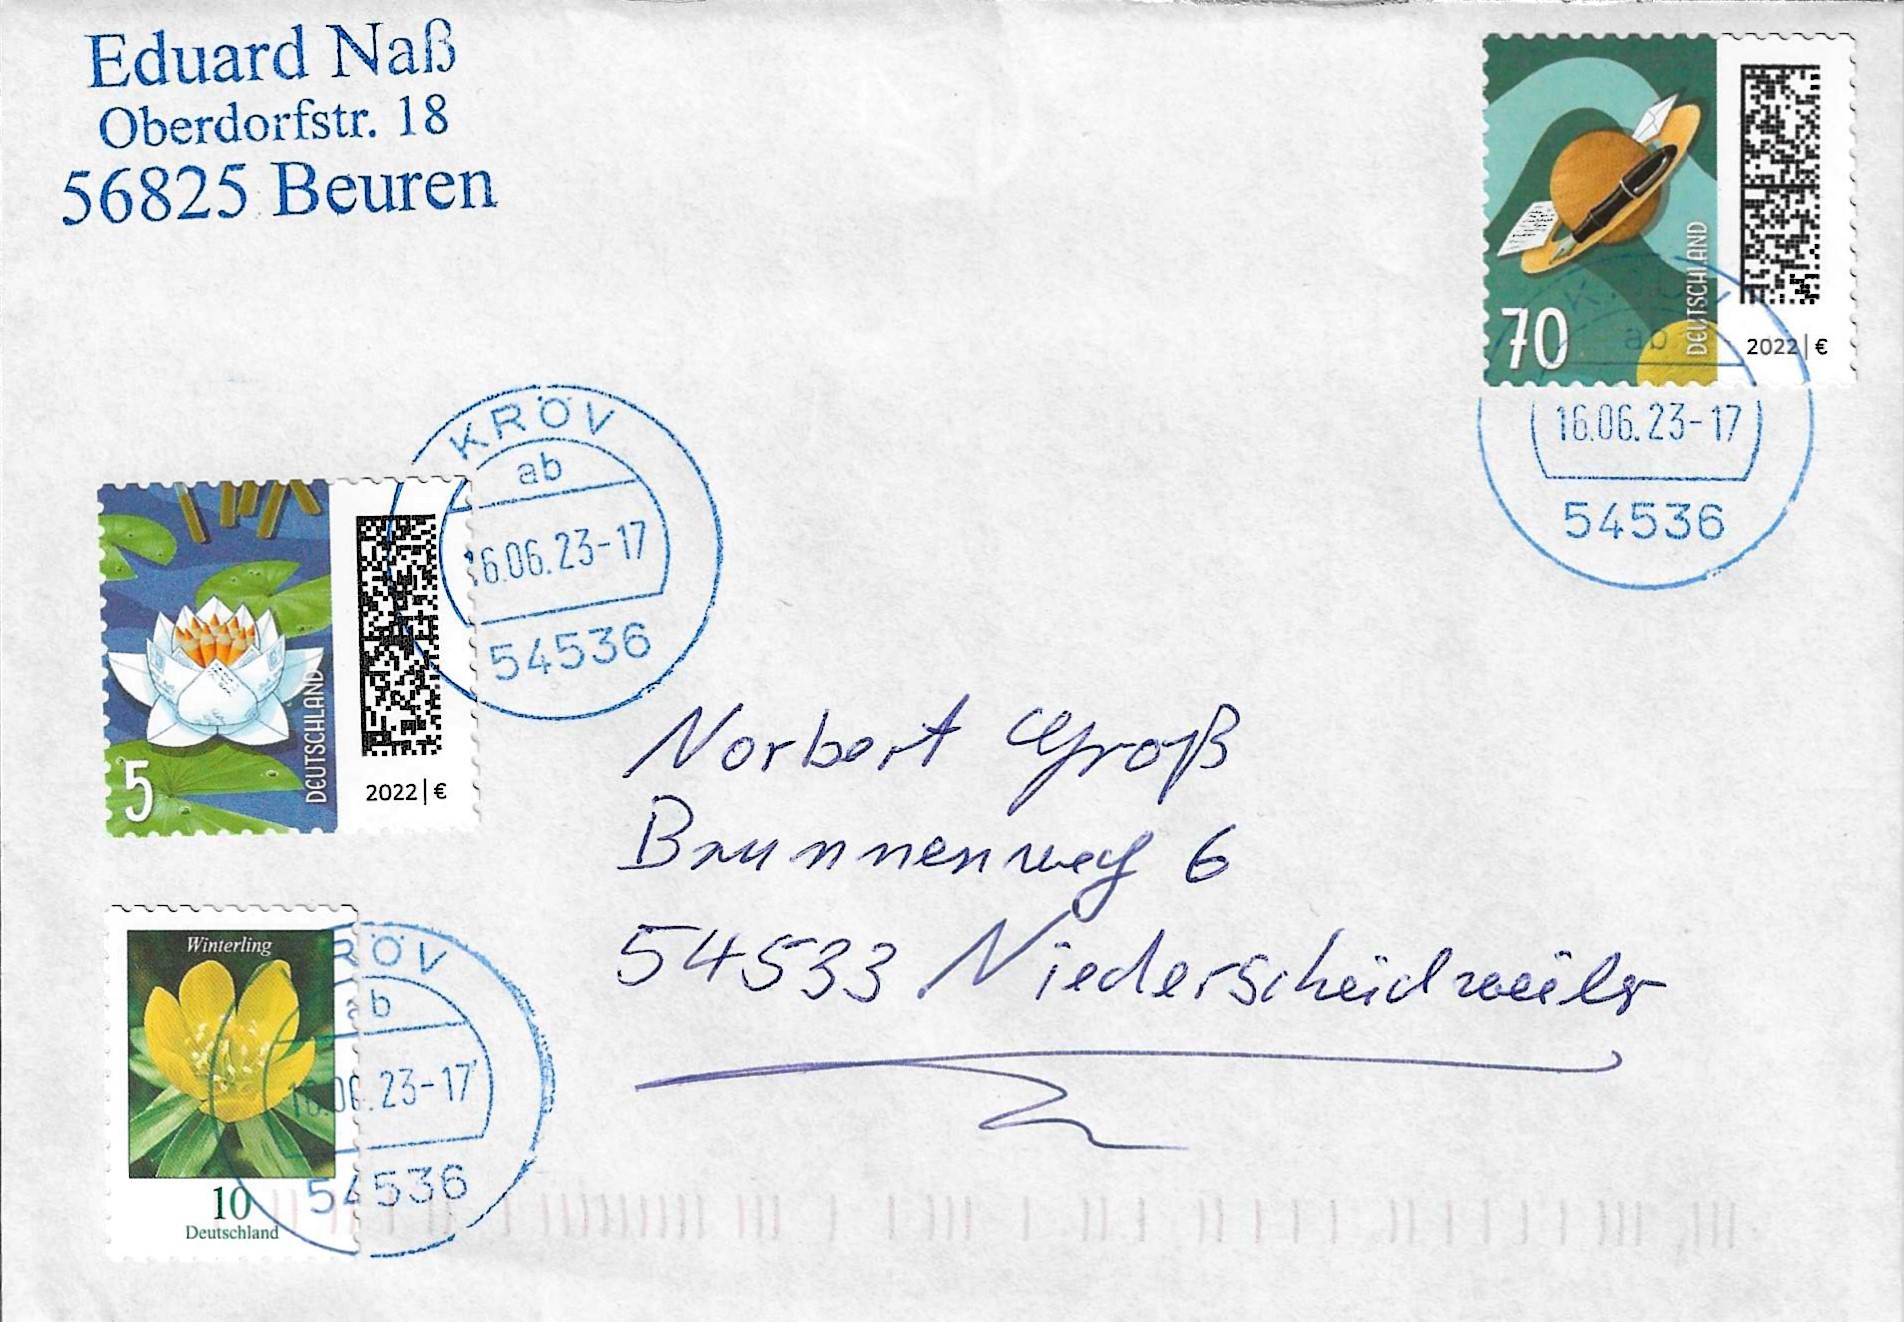 Eduard Naß
Oberdorfstr. 18
56825 Beuren
70
DEUTSCHLAND
2022 | €
KRÖV
ab
16.06.23-17
54536
5
DEUTSCHLAND
2022 | €
KRÖV
ab
16.06.23-17
54536
Norbert Groß
Brunnenweg 6
54533 Niederscheidweiler
Winterling
10
Deutschland
KRÖV
ab
16.06.23-17
54536